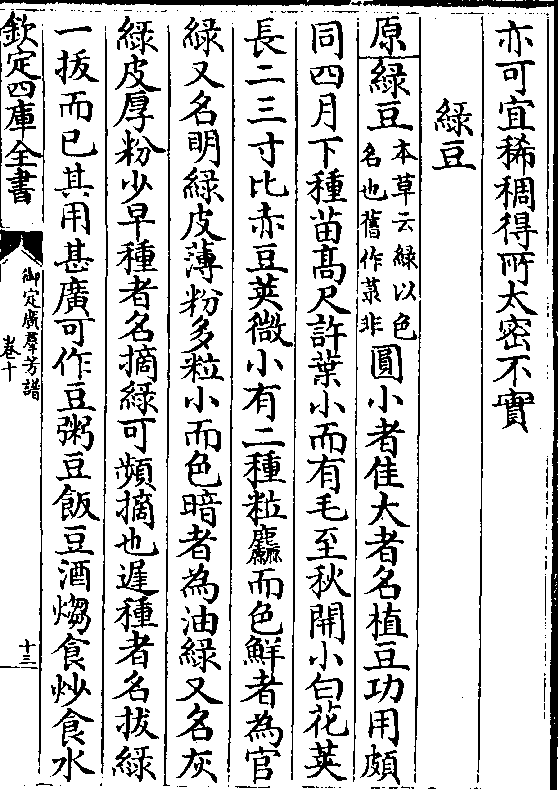 亦可宜稀稠得所太密不實
綠豆
原綠豆本草云綠以色名也舊作菉非圓小者佳大者名植豆功用頗
同四月下種苗髙尺許葉小而有毛至秋開小白花莢
長二三寸比赤豆莢微小有二種粒麤而色鮮者為官
綠又名明綠皮薄粉多粒小而色暗者為油綠又名灰
綠皮厚粉少早種者名摘綠可頻摘也遲種者名拔綠
一拔而已其用甚廣可作豆粥豆飯豆酒煼食炒食水
欽定四庫全書
御定廣羣芳譜
卷十
十三